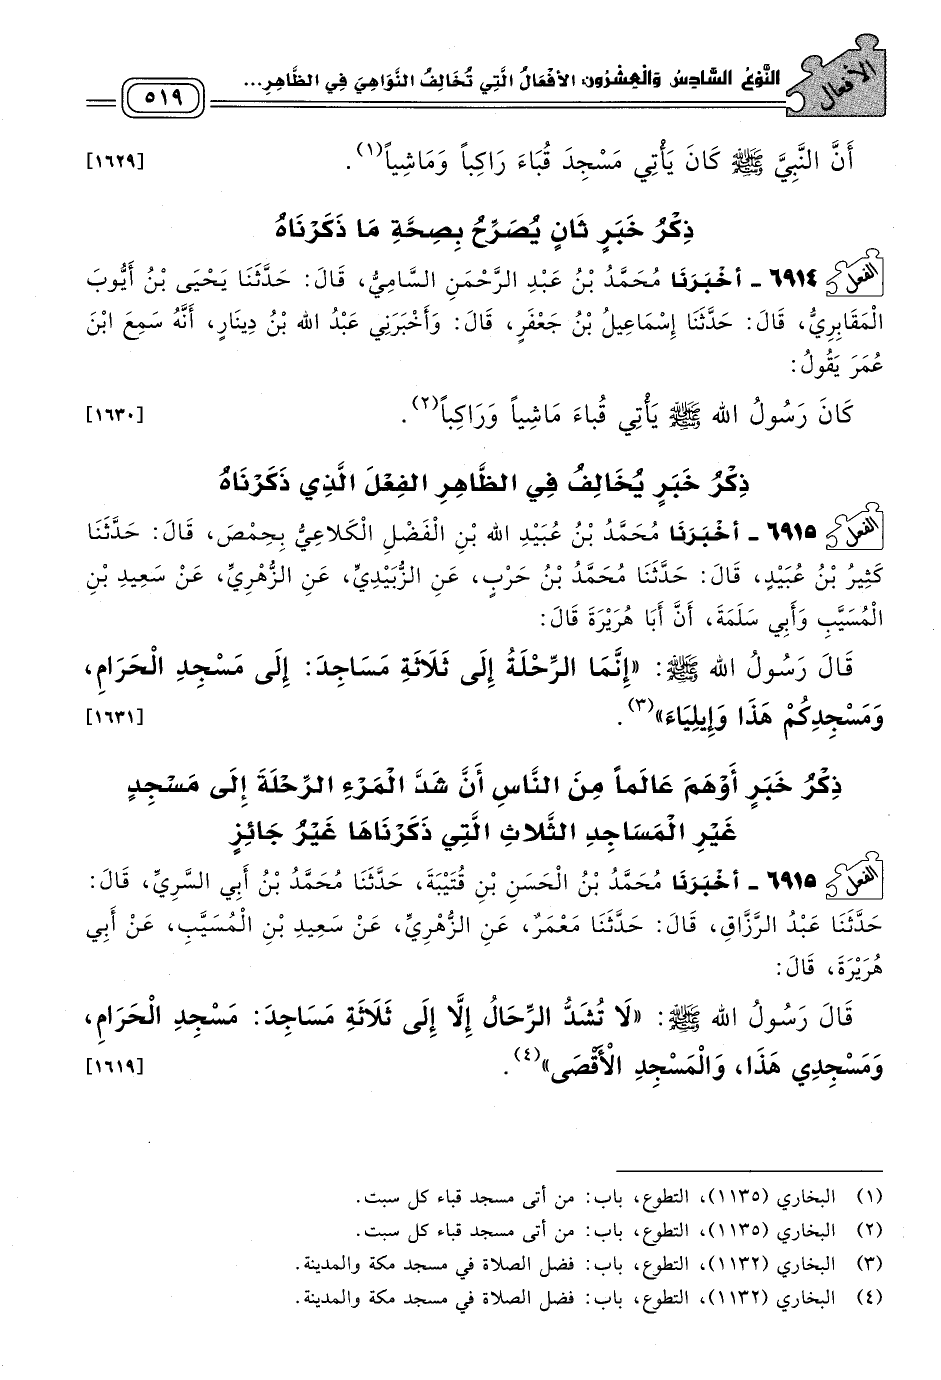 الأفعال
النَّوْعُ السَّادِسُ وَالْعِشْرُونَ الأَفْعَالُ الَّتِي تُخَالِفُ النَّوَاهِيَ فِي الظَّاهِرِ...
٥١٩
أَنَّ النَّبِيَّ ﷺ كَانَ يَأْتِي مَسْجِدَ قُبَاءَ رَاكِباً وَمَاشِياً(١). [١٦٢٩]
ذِكْرُ خَبَرٍ ثَانٍ يُصَرِّحُ بِصِحَّةِ مَا ذَكَرْنَاهُ
الفعل ٦٩١٤ - أَخْبَرَنَا مُحَمَّدُ بْنُ عَبْدِ الرَّحْمَنِ السَّامِيُّ، قَالَ: حَدَّثَنَا يَحْيَى بْنُ أَيُّوبَ
الْمَقَابِرِيُّ، قَالَ: حَدَّثَنَا إِسْمَاعِيلُ بْنُ جَعْفَرٍ، قَالَ: وَأَخْبَرَنِي عَبْدُ الله بْنُ دِينَارٍ، أَنَّهُ سَمِعَ ابْنَ
عُمَرَ يَقُولُ:
كَانَ رَسُولُ الله ﷺ يَأْتِي قُبَاءَ مَاشِياً وَرَاكِباً(٢). [١٦٣٠]
ذِكْرُ خَبَرٍ يُخَالِفُ فِي الظَّاهِرِ الفِعْلَ الَّذِي ذَكَرْنَاهُ
الفعل ٦٩١٥ - أَخْبَرَنَا مُحَمَّدُ بْنُ عُبَيْدِ الله بْنِ الْفَضْلِ الْكَلاعِيُّ بِحِمْصَ، قَالَ: حَدَّثَنَا
كَثِيرُ بْنُ عُبَيْدٍ، قَالَ: حَدَّثَنَا مُحَمَّدُ بْنُ حَرْبٍ، عَنِ الزُّبَيْدِيِّ، عَنِ الزُّهْرِيِّ، عَنْ سَعِيدِ بْنِ
الْمُسَيَّبِ وَأَبِي سَلَمَةَ، أَنَّ أَبَا هُرَيْرَةَ قَالَ:
قَالَ رَسُولُ الله ﷺ: «إِنَّمَا الرِّحْلَةُ إِلَى ثَلَاثَةِ مَسَاجِدَ: إِلَى مَسْجِدِ الْحَرَامِ،
وَمَسْجِدِكُمْ هَذَا وَإِيلِيَاءَ»(٣). [١٦٣١]
ذِكْرُ خَبَرٍ أَوْهَمَ عَالَماً مِنَ النَّاسِ أَنَّ شَدَّ الْمَرْءِ الرِّحْلَةَ إِلَى مَسْجِدٍ
غَيْرِ الْمَسَاجِدِ الثَّلاثِ الَّتِي ذَكَرْنَاهَا غَيْرُ جَائِزٍ
الفعل ٦٩١٥ - أَخْبَرَنَا مُحَمَّدُ بْنُ الْحَسَنِ بْنِ قُتَيْبَةَ، حَدَّثَنَا مُحَمَّدُ بْنُ أَبِي السَّرِيِّ، قَالَ:
حَدَّثَنَا عَبْدُ الرَّزَّاقِ، قَالَ: حَدَّثَنَا مَعْمَرٌ، عَنِ الزُّهْرِيِّ، عَنْ سَعِيدِ بْنِ الْمُسَيَّبِ، عَنْ أَبِي
هُرَيْرَةَ، قَالَ:
قَالَ رَسُولُ الله ﷺ: «لَا تُشَدُّ الرِّحَالُ إِلَّا إِلَى ثَلَاثَةِ مَسَاجِدَ: مَسْجِدِ الْحَرَامِ،
وَمَسْجِدِي هَذَا، وَالْمَسْجِدِ الْأَقْصَى»(٤). [١٦١٩]
(١) البخاري (١١٣٥)، التطوع، باب: من أتى مسجد قباء كل سبت.
(٢) البخاري (١١٣٥)، التطوع، باب: من أتى مسجد قباء كل سبت.
(٣) البخاري (١١٣٢)، التطوع، باب: فضل الصلاة في مسجد مكة والمدينة.
(٤) البخاري (١١٣٢)، التطوع، باب: فضل الصلاة في مسجد مكة والمدينة.